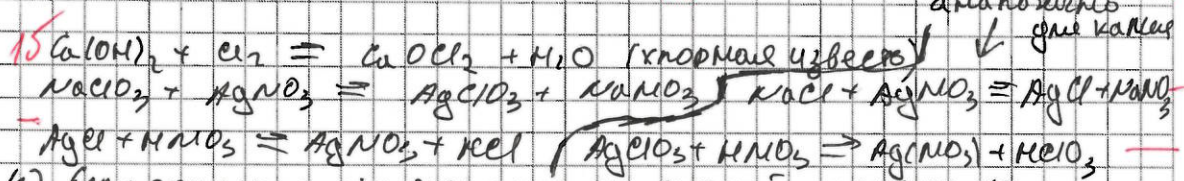 аналогично
для калия
15 Ca(OH)₂ + Cl₂ = CaOCl₂ + H₂O (хлорная известь)
NaClO₃ + AgNO₃ = AgClO₃ + NaNO₃ NaCl + AgNO₃ = AgCl + NaNO₃
AgCl + HNO₃ = AgNO₃ + HCl AgClO₃ + HNO₃ => Ag(NO₃) + HClO₃